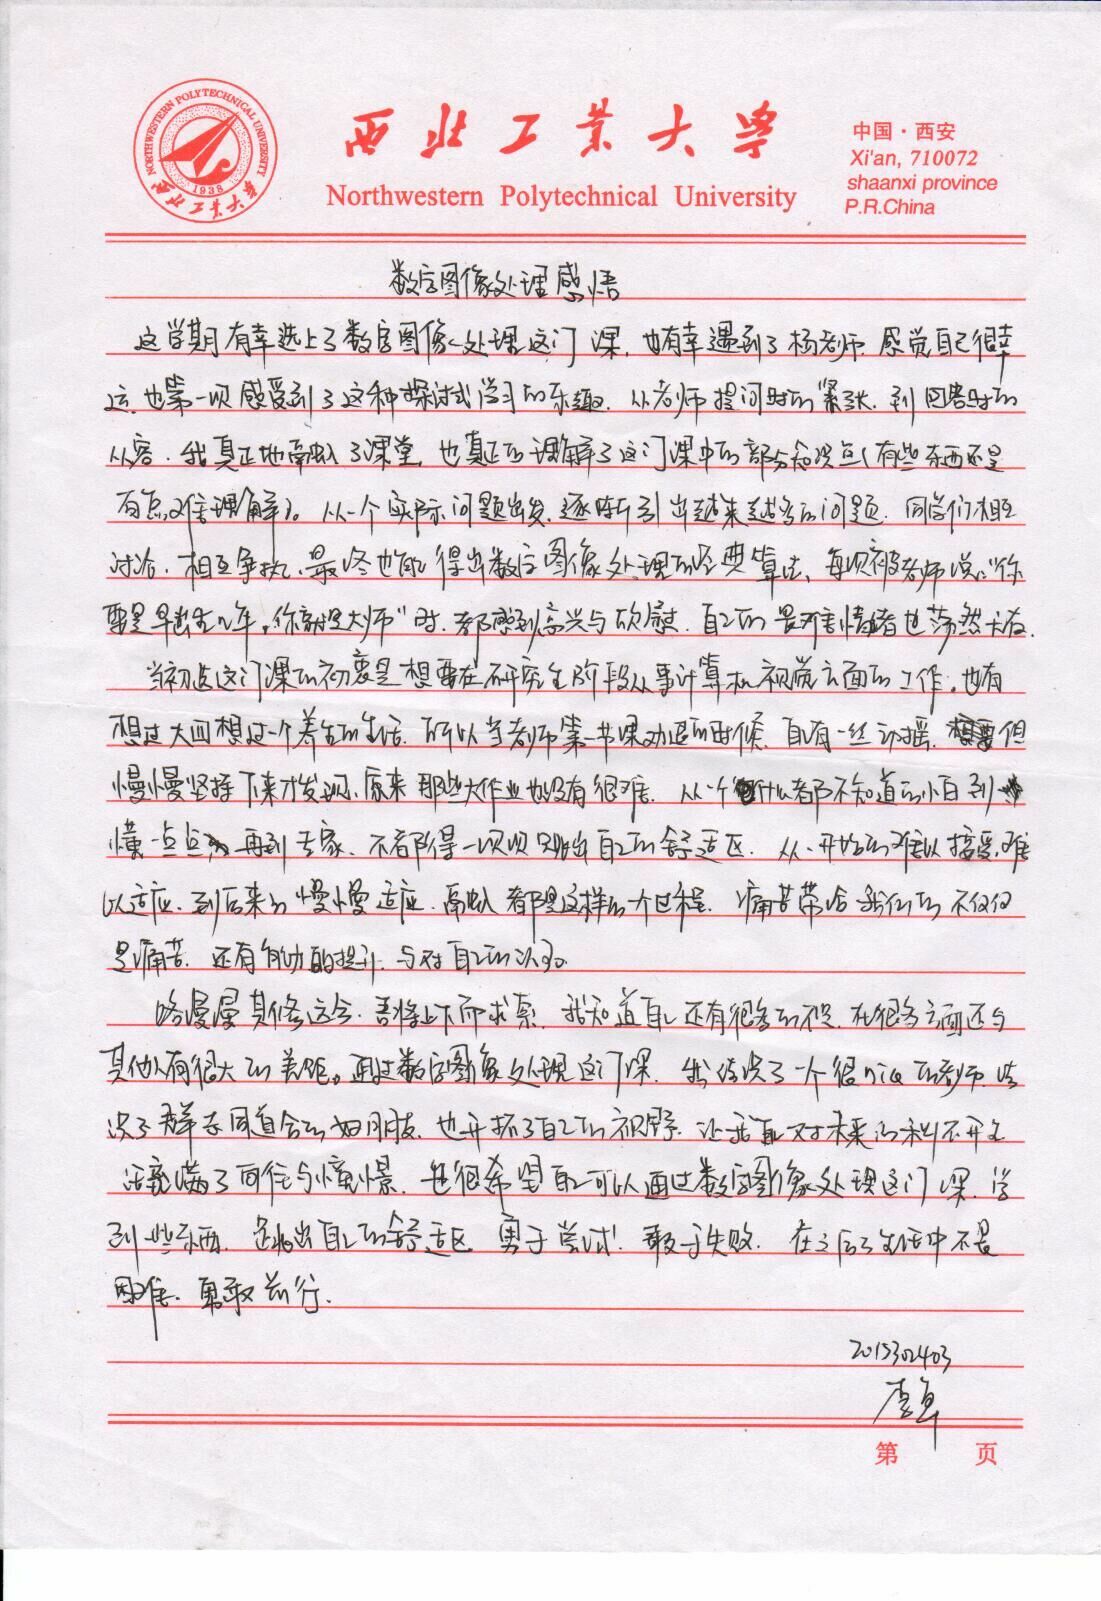 NORTHWESTERN POLYTECHNICAL UNIVERSITY
1938
西北工业大学
西北工业大学
Northwestern Polytechnical University
中国·西安
Xi'an, 710072
shaanxi province
P.R.China
数字图像处理感悟
这学期有幸选上了数字图像处理这门课,也有幸遇到了杨老师,感觉自己很幸
运,也第一次感受到了这种探讨式学习的乐趣,从老师提问时的紧张,到回答时的
从容,我真正地融入了课堂,也真正的理解了这门课中的部分知识点(有些东西还是
有点难理解)。从一个实际问题出发,逐渐引出越来越多的问题,同学们相互
讨论,相互争执,最终也能得出数字图像处理的经典算法,每次被老师说“你
要是早出生几年,你就是大师”时,都感到高兴与欣慰,自己的畏难情绪也荡然无存。
当初选这门课的初衷是想要在研究生阶段从事计算机视觉方面的工作,也有
想过大四想过一个养生的生活,所以当老师第一节课劝退的时候,自有一丝动摇,但
慢慢坚持下来才发现,原来那些大作业也没有很难,从一个什么都不知道的小白到
懂一点点,再到专家,不都得一次次跳出自己的舒适区,从一开始的难以接受,难
以适应,到后来的慢慢适应,融入都是这样的一个过程,痛苦带给我们的不仅仅
是痛苦,还有能力的提升,与对自己的认可。
路漫漫其修远兮,吾将上下而求索,我知道自己还有很多的不足,在很多方面还与
其他人有很大的差距。通过数字图像处理这门课,我结识了一个很的老师,结
识了一群志同道合的好朋友,也开拓了自己的视野,让我自己对未来的科研生
活充满了向往与憧憬,也很希望自己可以通过数字图像处理这门课,学
到一些东西,跳出自己的舒适区,勇于尝试,敢于失败,在之后的生活中不畏
困难,勇敢前行。
2015302403
李卓
第 页